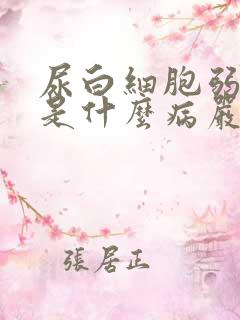 尿白細胞弱
是什麼病嚴
張居正